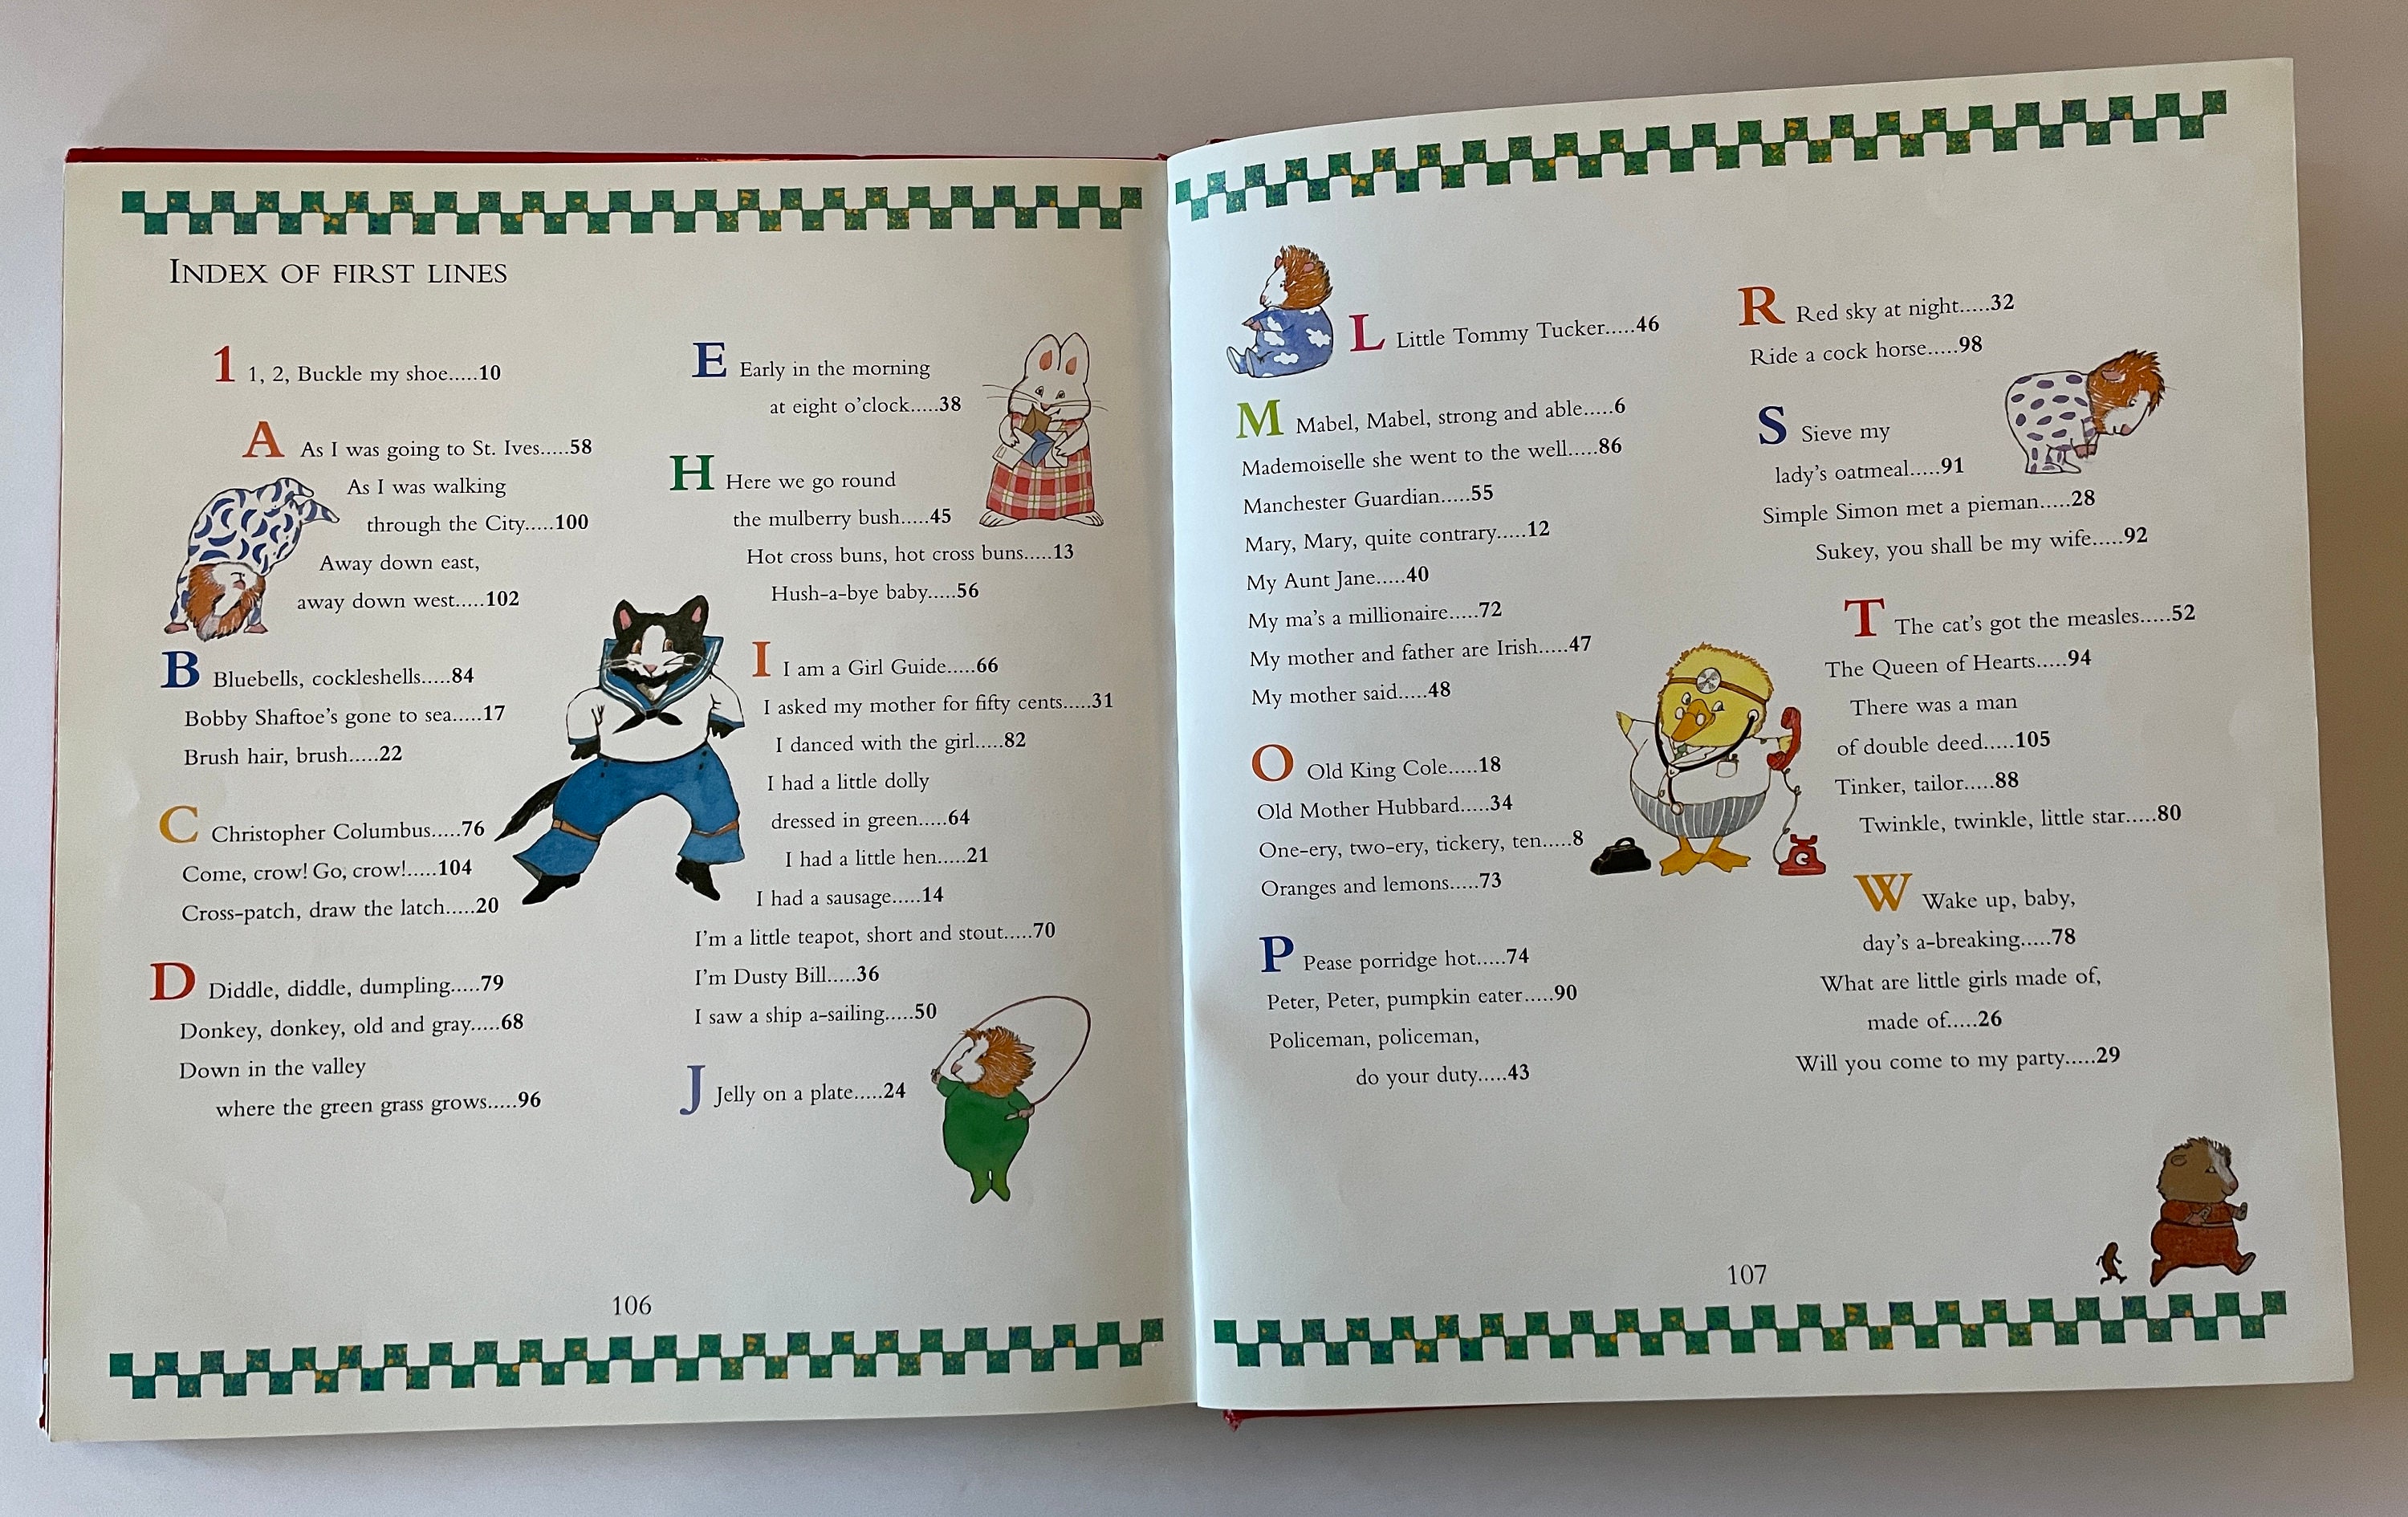 INDEX OF FIRST LINES
1 1, 2, Buckle my shoe.....10
A As I was going to St. Ives.....58
As I was walking
through the City.....100
Away down east,
away down west.....102
B Bluebells, cockleshells.....84
Bobby Shaftoe's gone to sea.....17
Brush hair, brush.....22
C Christopher Columbus.....76
Come, crow! Go, crow!.....104
Cross-patch, draw the latch.....20
D Diddle, diddle, dumpling.....79
Donkey, donkey, old and gray.....68
Down in the valley
where the green grass grows.....96
E Early in the morning
at eight o'clock.....38
H Here we go round
the mulberry bush.....45
Hot cross buns, hot cross buns.....13
Hush-a-bye baby.....56
I I am a Girl Guide.....66
I asked my mother for fifty cents.....31
I danced with the girl.....82
I had a little dolly
dressed in green.....64
I had a little hen.....21
I had a sausage.....14
I'm a little teapot, short and stout.....70
I'm Dusty Bill.....36
I saw a ship a-sailing.....50
J Jelly on a plate.....24
106
L Little Tommy Tucker.....46
M Mabel, Mabel, strong and able.....6
Mademoiselle she went to the well.....86
Manchester Guardian.....55
Mary, Mary, quite contrary.....12
My Aunt Jane.....40
My ma's a millionaire.....72
My mother and father are Irish.....47
My mother said.....48
O Old King Cole.....18
Old Mother Hubbard.....34
One-ery, two-ery, tickery, ten.....8
Oranges and lemons.....73
P Pease porridge hot.....74
Peter, Peter, pumpkin eater.....90
Policeman, policeman,
do your duty.....43
R Red sky at night.....32
Ride a cock horse.....98
S Sieve my
lady's oatmeal.....91
Simple Simon met a pieman.....28
Sukey, you shall be my wife.....92
T The cat's got the measles.....52
The Queen of Hearts.....94
There was a man
of double deed.....105
Tinker, tailor.....88
Twinkle, twinkle, little star.....80
W Wake up, baby,
day's a-breaking.....78
What are little girls made of,
made of.....26
Will you come to my party.....29
107